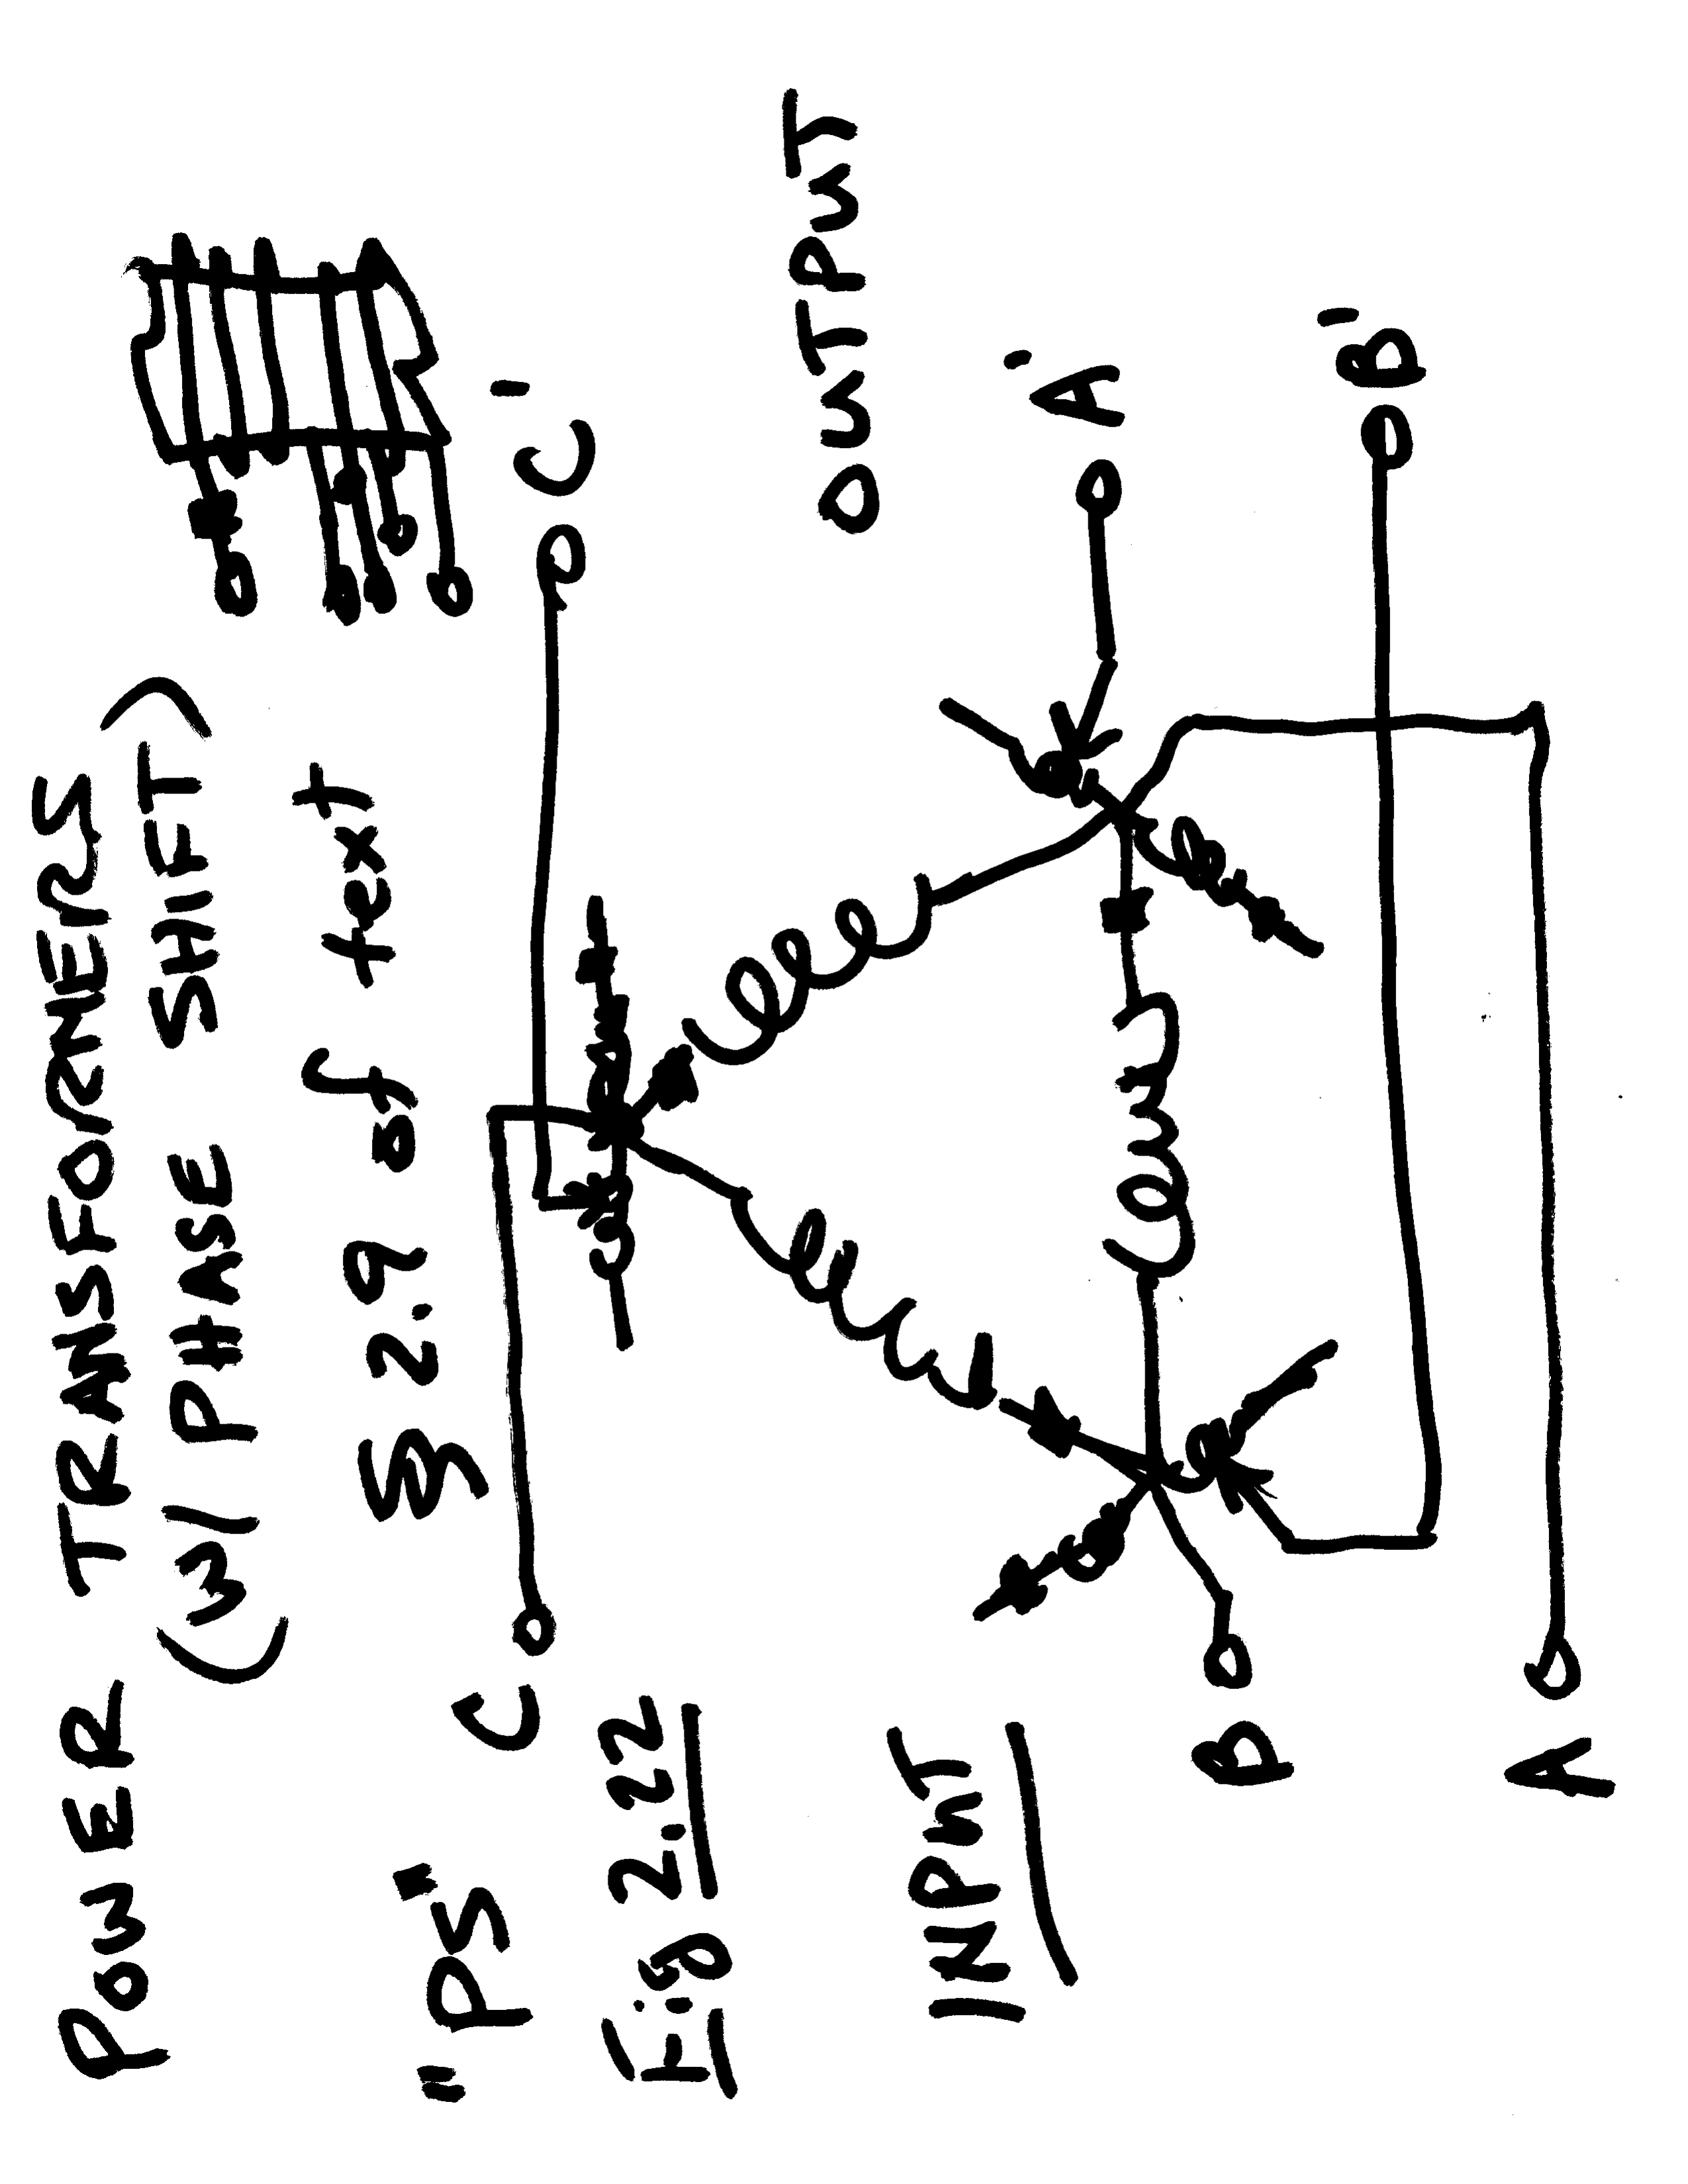 POWER TRANSFORMERS
(W/ PHASE SHIFT)
"PS" § 2.9 of text
Fig 2.22
C
C'
INPUT
OUTPUT
B
A'
A
B'